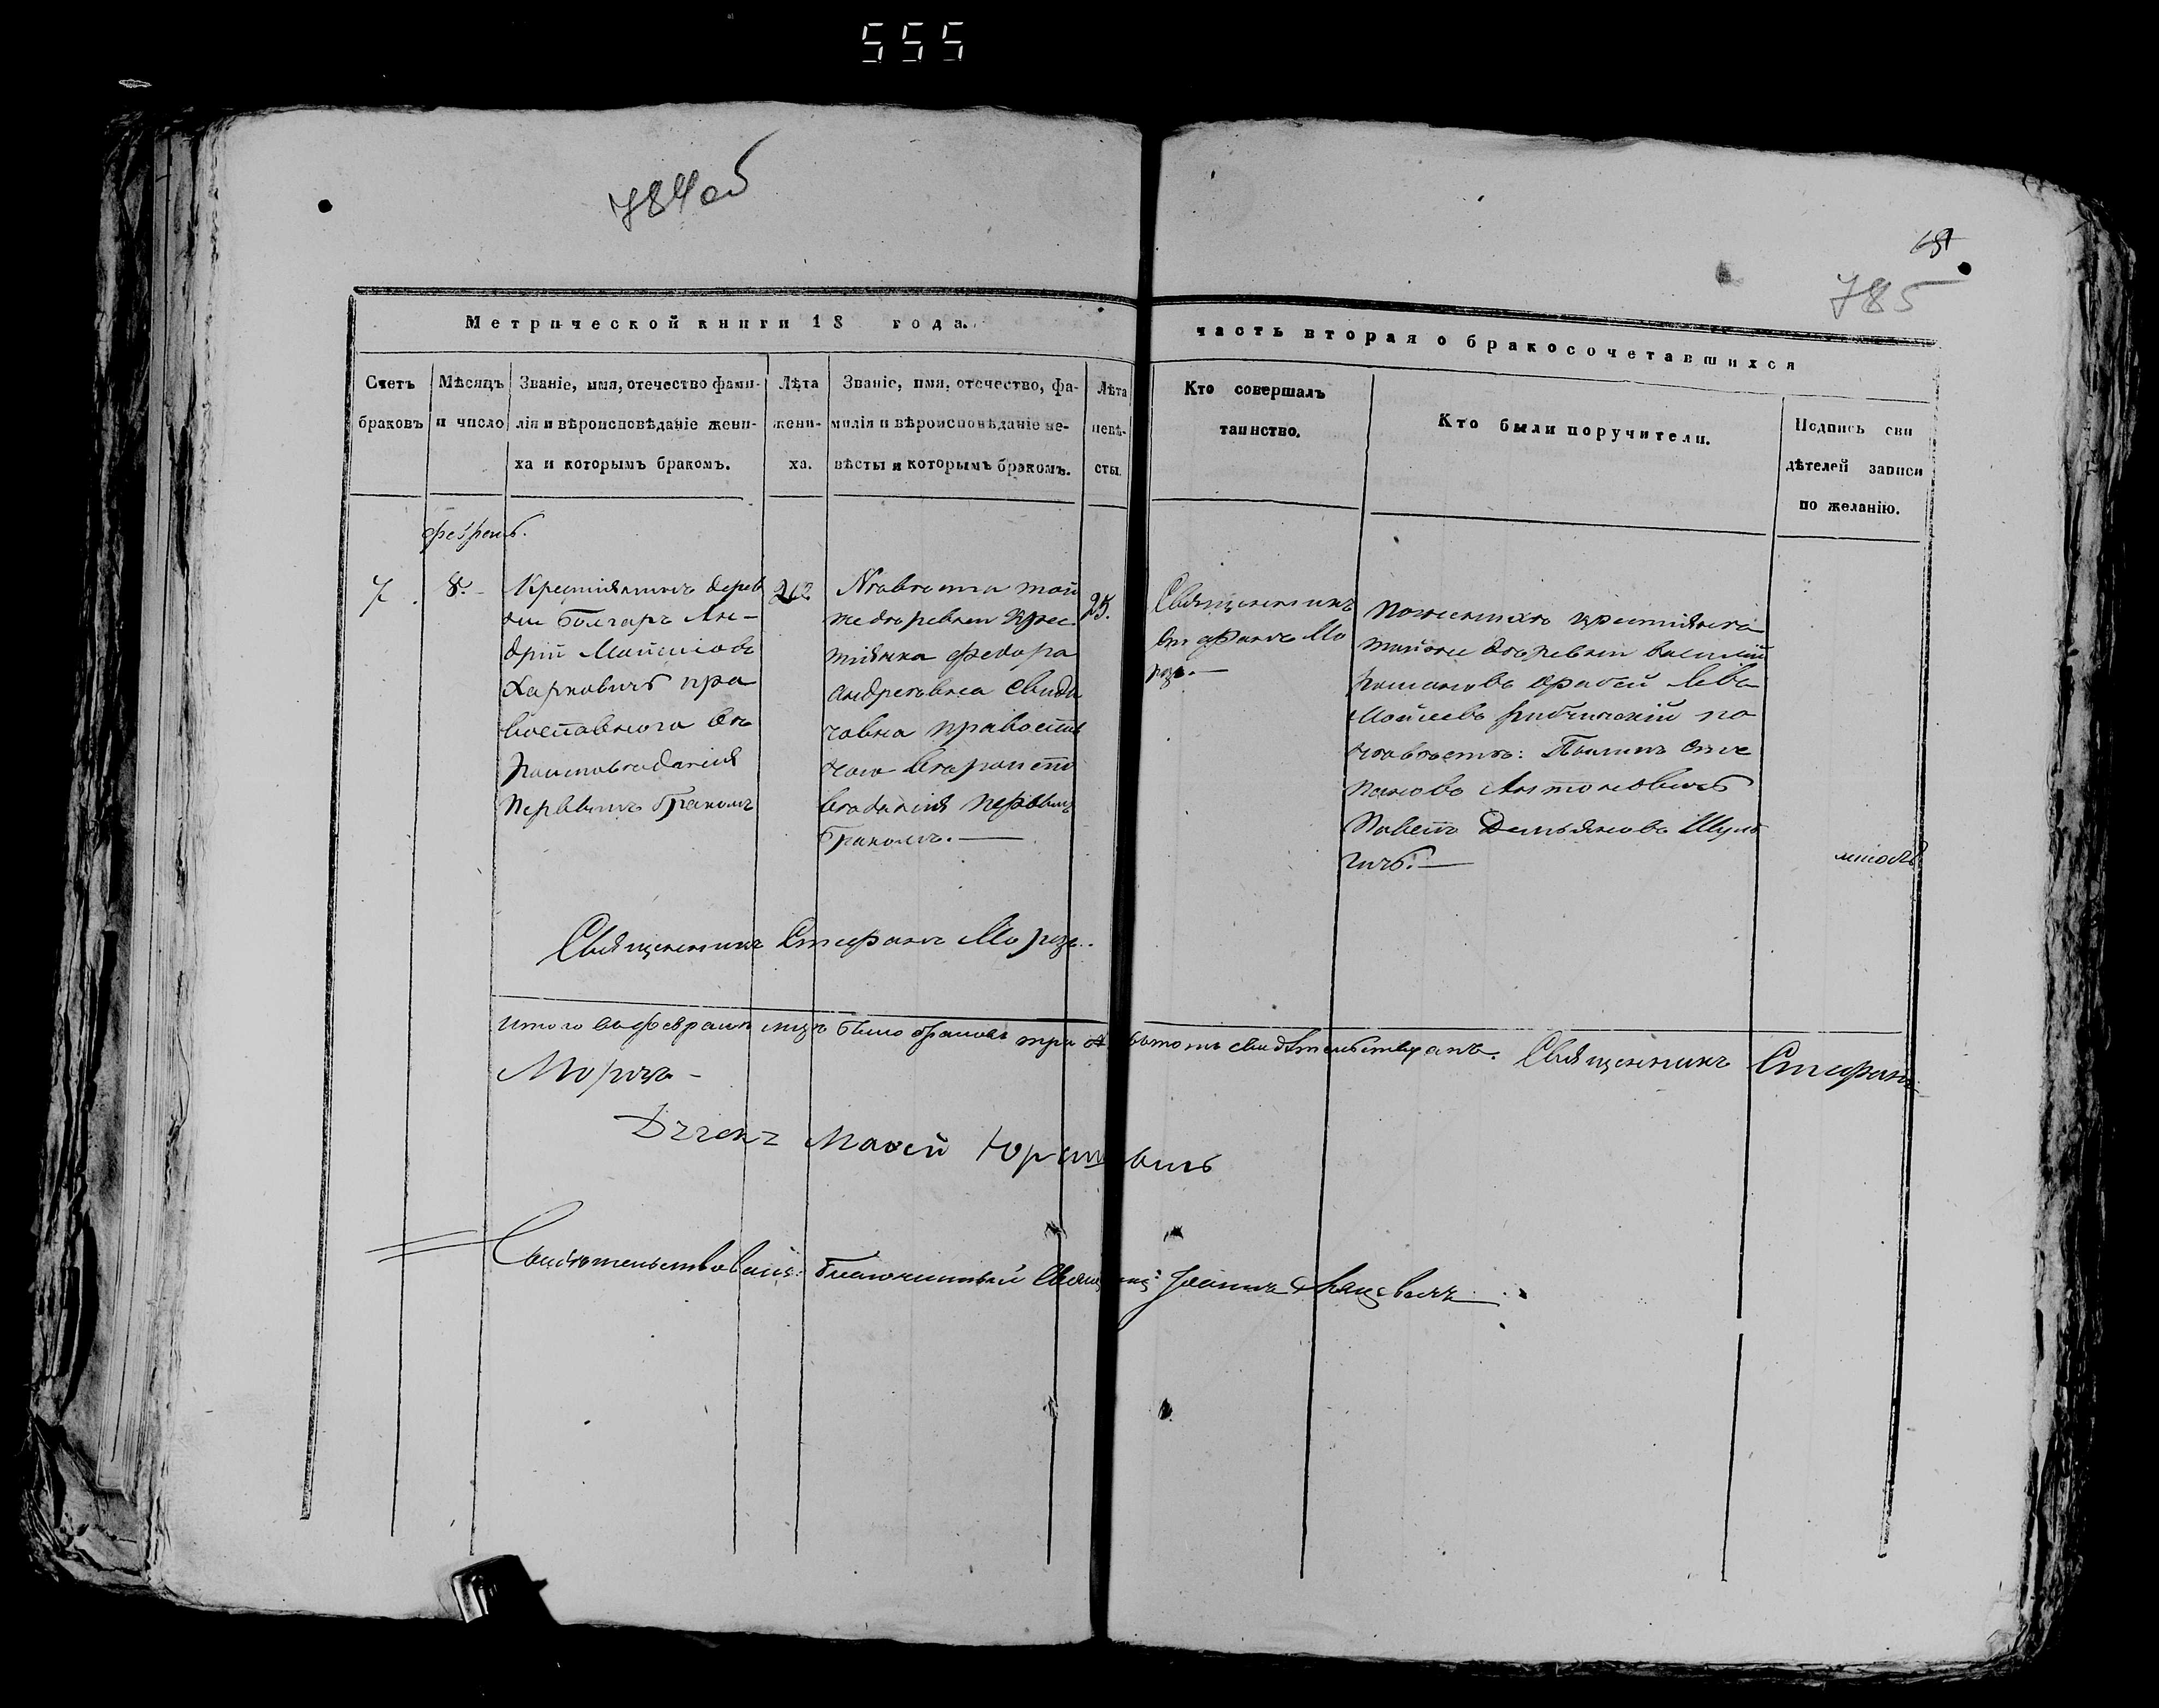 555
784об
785
Метрической книги 18 года.
часть вторая о бракосочетавшихся
Счетъ браковъ
Мѣсяцъ и число
Званіе, имя, отечество фами-
лія и вѣроисповѣданіе жени-
ха и которымъ бракомъ.
Лѣта
жени-
ха.
Званіе, имя, отечество, фа-
милія и вѣроисповѣданіе не-
вѣсты и которымъ бракомъ.
Лѣта
невѣ-
сты.
Кто совершалъ
таинство.
Кто были поручители.
Подпись сви
дѣтелей записи
по желанію.
7.
8.
Крестіянинъ дерев
ни Болгаръ Ан-
дрій Мойсіовъ
Харковичъ пра
вославного вѣ
роисповѣданія
первымъ бракомъ
Невѣста той
же деревни крес
тіянка Федора
Андреевна
православ
ного вѣроиспо
вѣданія первымъ
бракомъ.
25.
Священникъ
Стефанъ Мо
розъ.
По женихѣ крестіяне
тойже деревни Василій
Романовъ Левъ
Мойсеевъ по
невѣсте: Сте
пановъ Антоновичъ
Павелъ Демьяновъ Шуль
гичъ.
Священникъ Стефанъ Морозъ.
Итого въ Февралѣ мцѣ было браковъ три въ томъ свидѣтельствуемъ. Священникъ Стефанъ
Морозъ
Дячекъ Мовсей
Свидѣтельствовалъ: Благочинный Священ: Іоаннъ